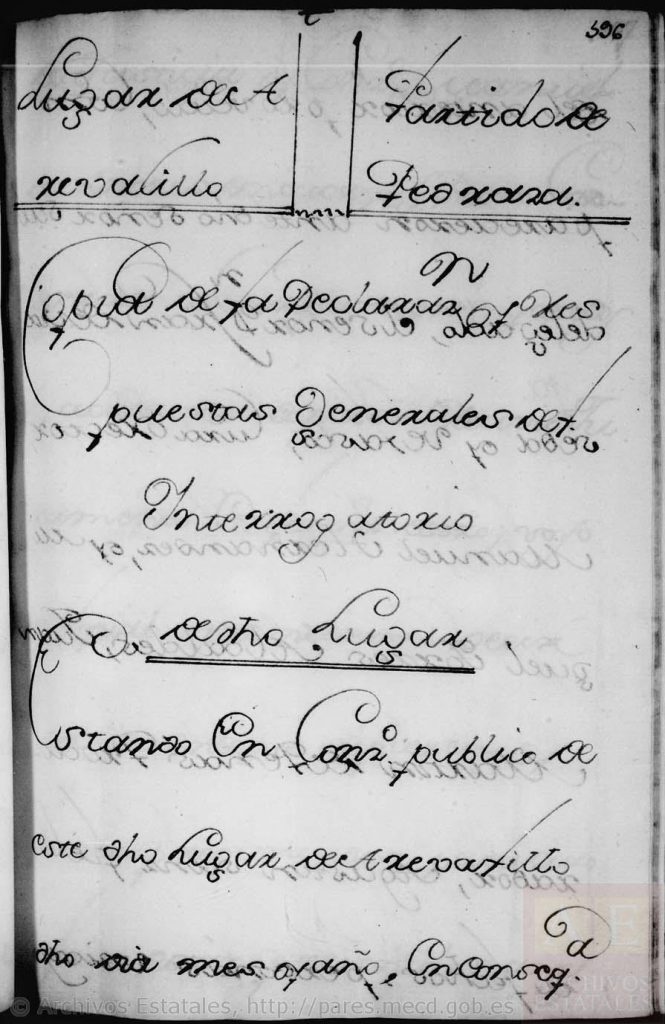 396
Lugar de A
revalillo
Partido de
Pedraza.
Copia de la Declarazn y Res
puestas Generales del
Interrogatorio
de dho Lugar
Estando En Conzo publico de
este dho Lugar de Arevalillo
dho dia mes y año, En Conseqa
© Archivos Estatales, http://pares.mecd.gob.es
ARCHIVOS
ESTATALES